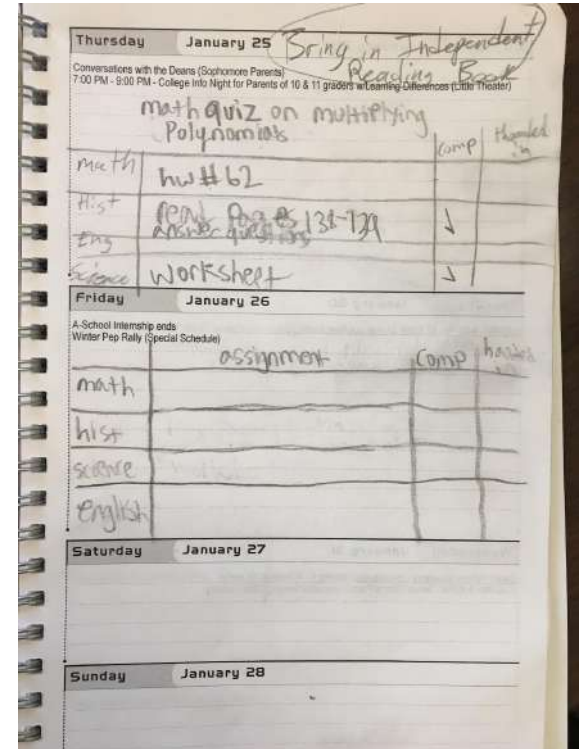 Thursday January 25 Bring in Independent
Reading Book
Conversations with the Deans (Sophomore Parents)
7:00 PM - 9:00 PM - College Info Night for Parents of 10 & 11 graders w/Learning Differences (Little Theater)
math quiz on multiplying
Polynomials
comp handed in
math hw#62
Hist read Pages 138-139
answer questions
Eng
Science Worksheet ✓
Friday January 26
A-School Internship ends
Winter Pep Rally (Special Schedule)
assignment comp handed
math
hist
science
english
Saturday January 27
Sunday January 28